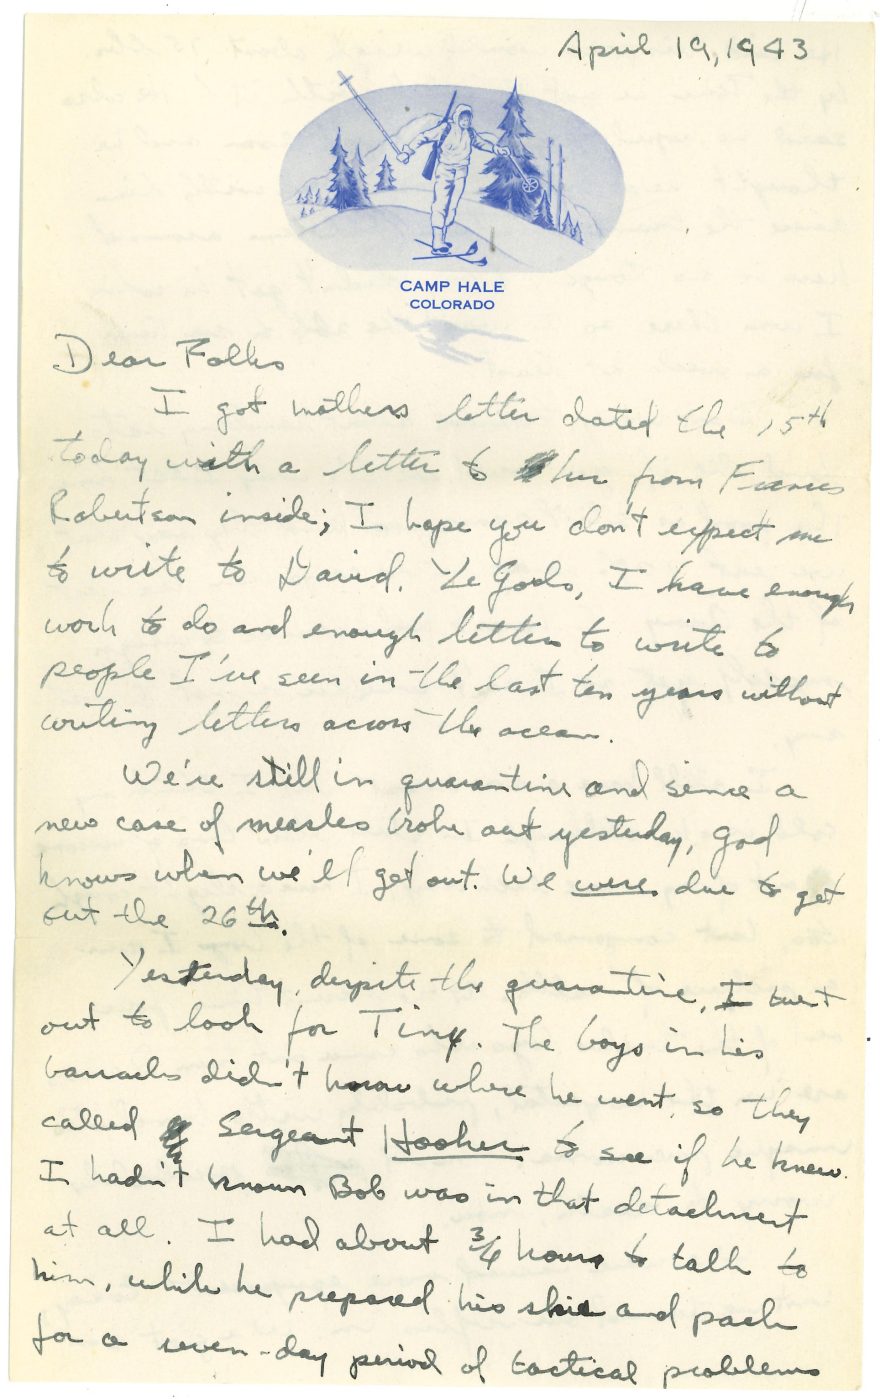 April 19, 1943
CAMP HALE
COLORADO
Dear Folks
I got mothers letter dated the 15th
today with a letter to her from Frances
Robertson inside; I hope you don't expect me
to write to David. Ye Gods, I have enough
work to do and enough letters to write to
people I've seen in the last ten years without
writing letters across the ocean.
We're still in quarantine and since a
new case of measles broke out yesterday, God
knows when we'll get out. We were due to get
out the 26th.
Yesterday, despite the quarantine, I went
out to look for Tiny. The boys in his
barracks didn't know where he went, so they
called Sergeant Hooker to see if he knew.
I hadn't known Bob was in that detachment
at all. I had about 3/4 hours to talk to
him, while he prepared his skis and pack
for a seven-day period of tactical problems